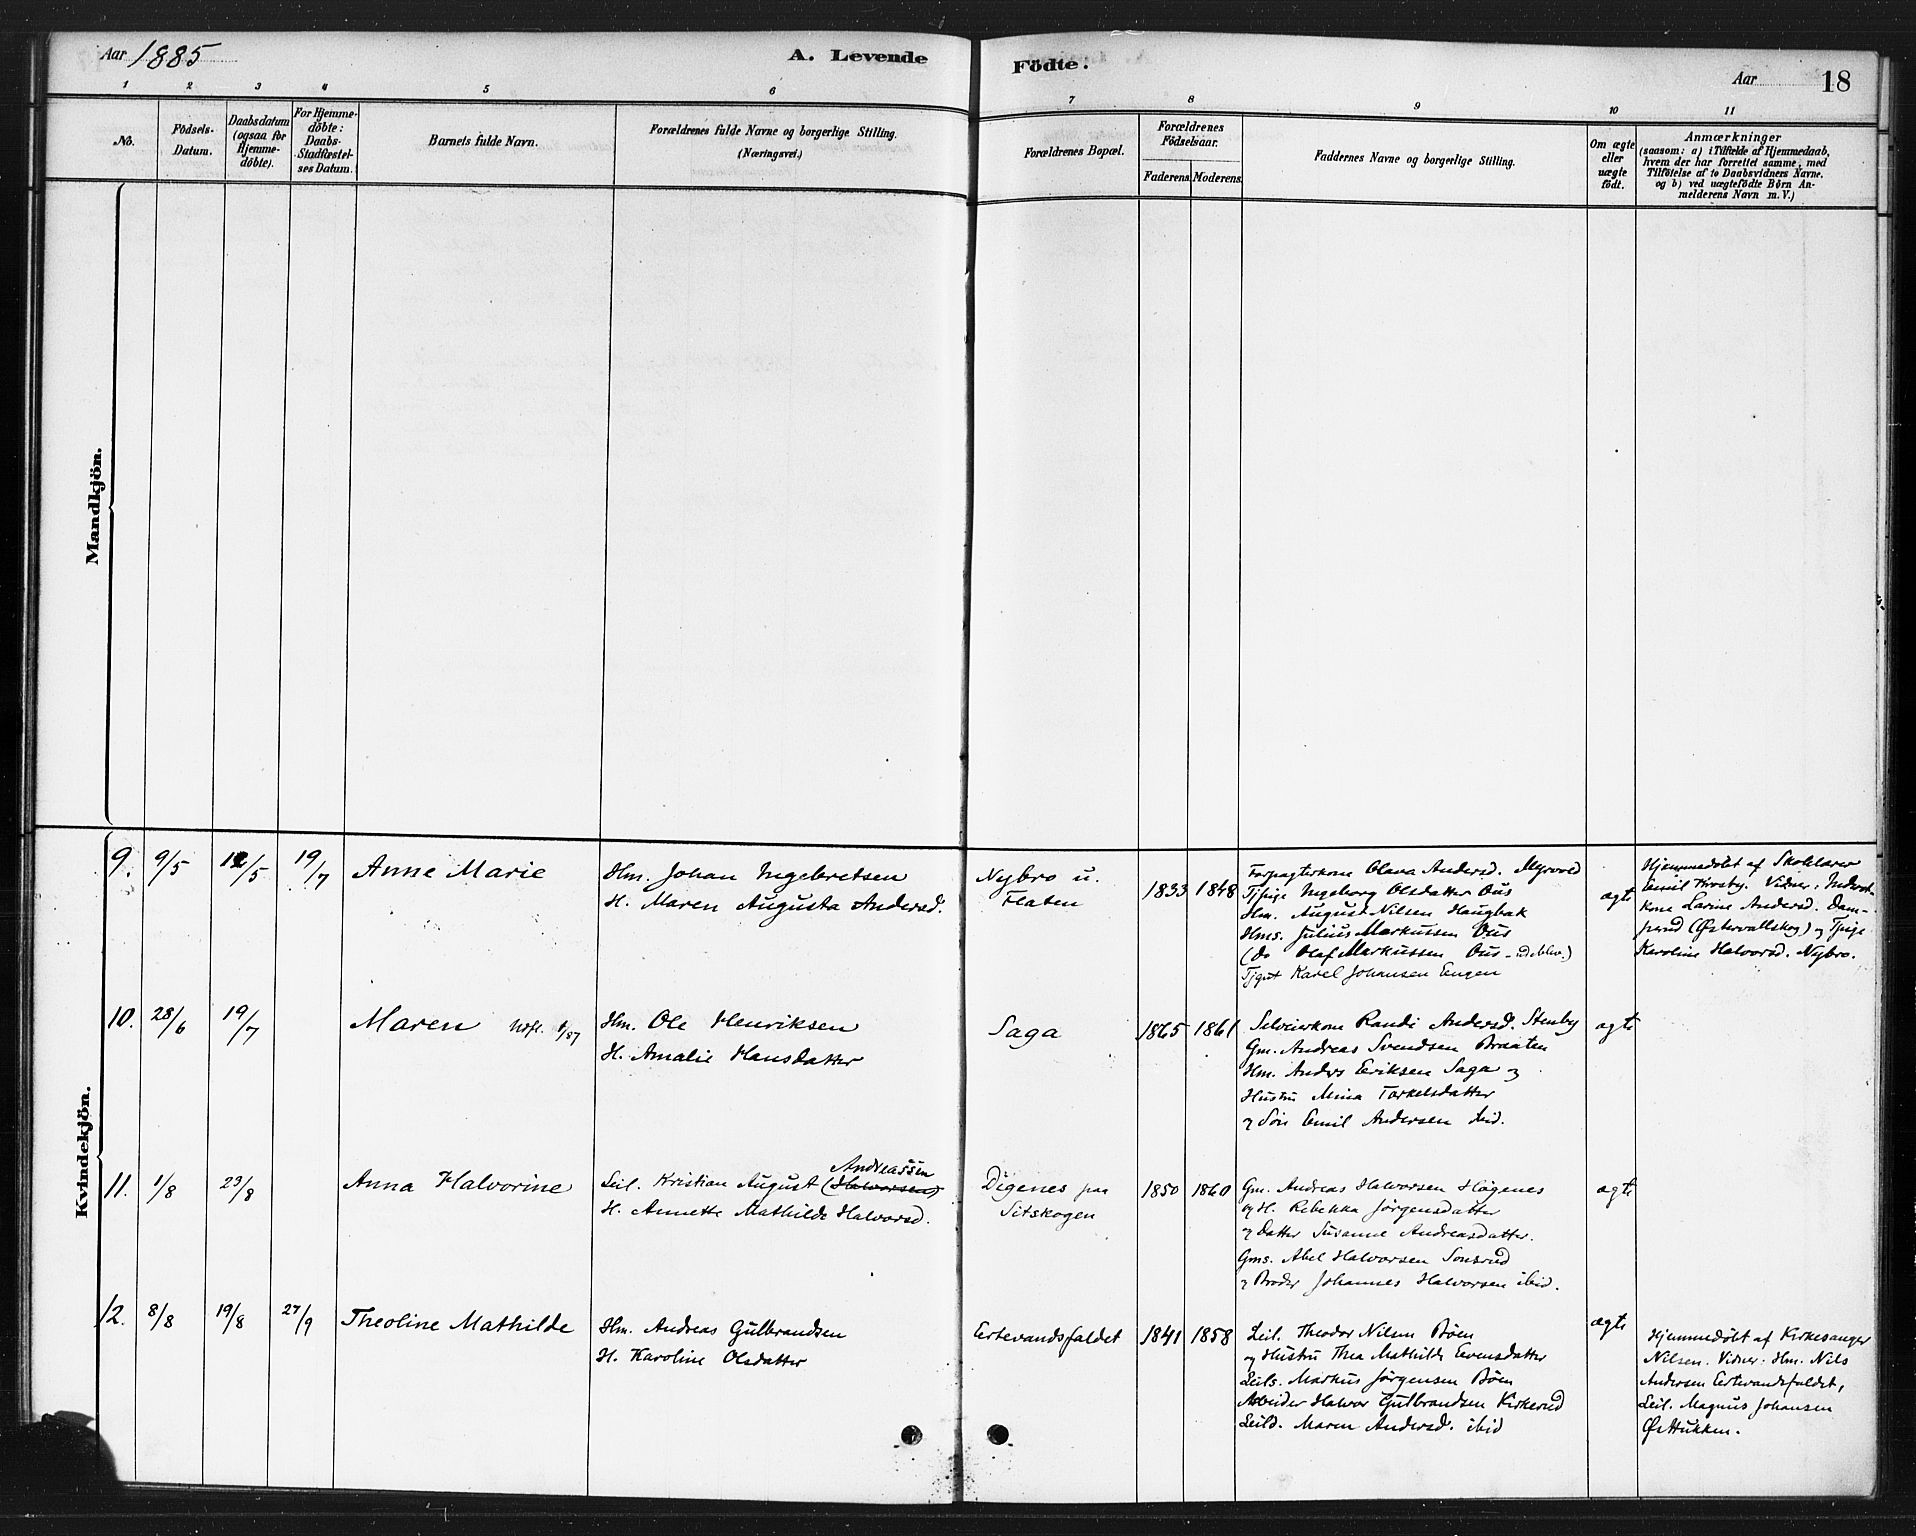 Aar 1885
A. Levende Födte.
Aar
18
1 2 3 4 5 6 7 8 9 10 11
No.
Födsels-
Datum.
Daabsdatum
(ogsaa for
Hjemme-
döbte).
For Hjemme-
döbte:
Daabs-
Stadfæstel-
ses Datum.
Barnets fulde Navn.
Forældrenes fulde Navne og borgerlige Stilling.
(Næringsvei.)
Forældrenes Bopæl.
Forældrenes
Födselsaar.
Faderens. Moderens.
Faddernes Navne og borgerlige Stilling.
Om ægte
eller
uægte
födt.
Anmærkninger
(saasom: a) i Tilfælde af Hjemmedaab,
hvem der har forrettet samme, med
Tilföielse af to Daabsvidners Navne.
og b) ved uægtefödte Börn An-
melderens Navn m.V.)
Mandkjön.
Kvindekjön.
9. 9/5 12/5 19/7
Anne Marie
Hm. Johan Ingebretsen
H. Maren Augusta Andersd.
Nybro u.
Flaten
1833 1848
Forpagterkone Olava Andersd. Myrvold
Tjpige Ingeborg Olsdatter Ous
Hm. August Nilsen Haugbak
Hms. Julius Markussen Ous
(Do Olaf Markussen Ous - udeblev.)
Tjgut Karel Johansen Engen
ægte
Hjemmedøbt af Skolelærer
Emil Krosby. Vidner: Inderst-
kone Larine Andersd. Dam-
perud (Østervallskog) og Tjpige
Karoline Halvorsd. Nybro.
10. 28/6 19/7
Maren
Hm. Ole Henriksen
H. Amalie Hansdatter
Saga
1865 1861
Selveierkone Randi Andersd. Stenby
Gm. Andreas Svendsen Braaten
Hm. Anders Eriksen Saga og
Hustru Mina Torkelsdatter
og Søn Emil Andersen ibid.
ægte
11. 1/8 23/8
Anna Halvorine
Andreassen
Leil. Kristian August (Halvorsen)
H. Annette Mathilde Halvorsd.
Digenes paa
Setskogen
1850 1860
Gm. Andreas Halvorsen Høgenes
og H. Rebekka Jørgensdatter
og Datter Susanne Andreasdatter.
Gms. Abel Halvorsen Sonsrud
og Broder Johannes Halvorsen ibid.
ægte
12. 8/8 19/8 27/9
Theoline Mathilde
Hm. Andreas Gulbrandsen
H. Karoline Olsdatter
Ertevandsfaldet
1841 1858
Leil. Theodor Nilsen Bøen
og Hustru Thea Mathilde Evensdatter
Leils. Markus Jørgensen Bøen
Arbeider Halvor Gulbrandsen Kirkerud
Leild. Maren Andersd. ibid
ægte
Hjemmedøbt af Kirkesanger
Nilsen. Vidner: Hm. Nils
Andersen Ertevandsfaldet,
Leil. Magnus Johansen
Østtukken.